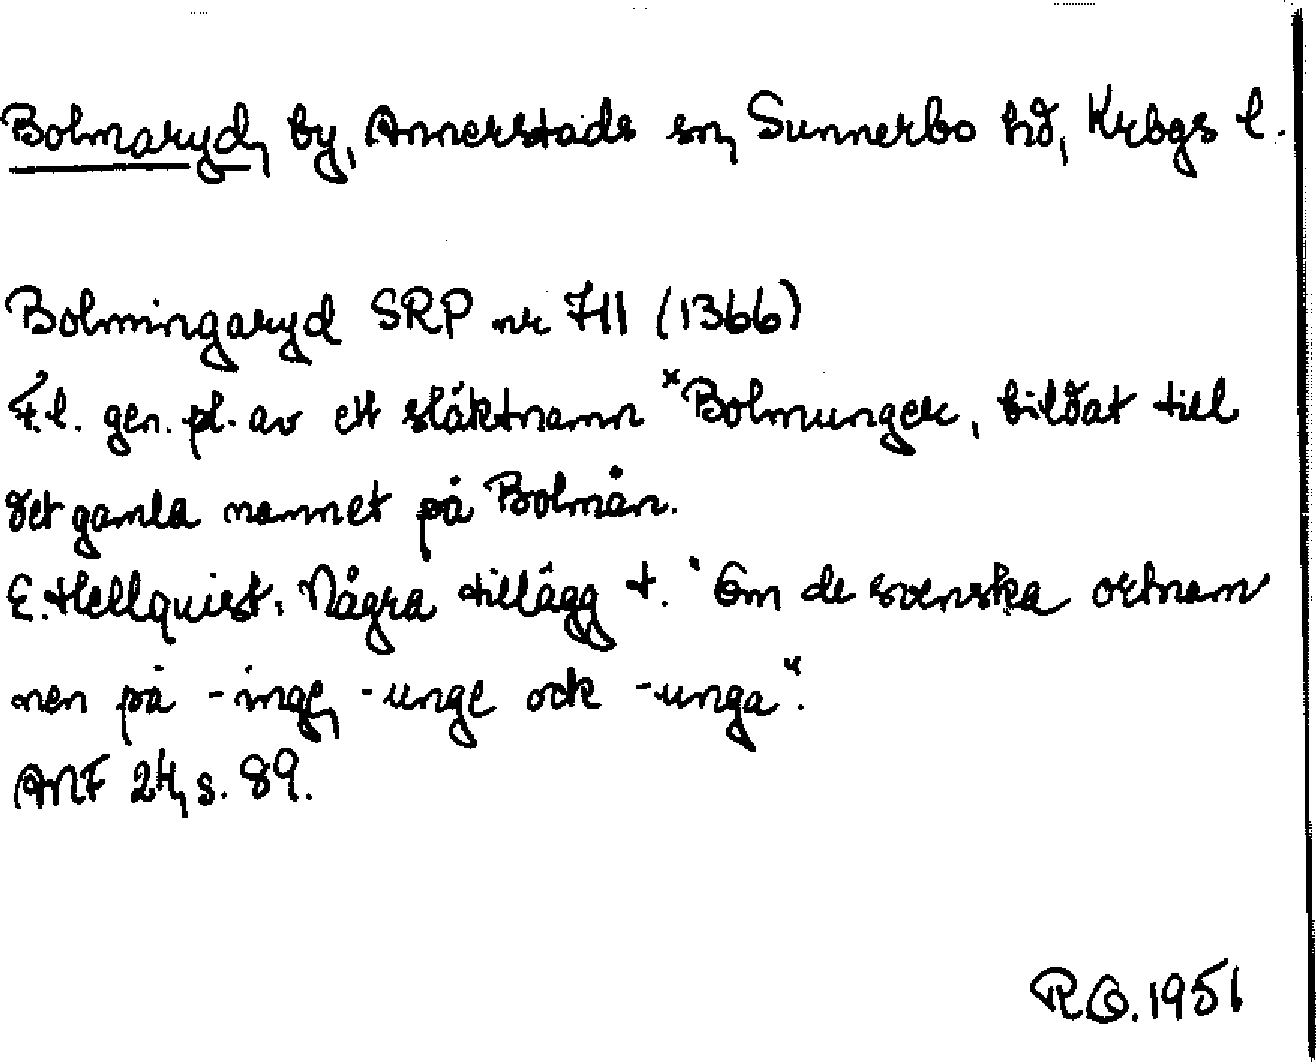 Bolmaryd, by, Annerstads sn, Sunnerbo hd, Krbgs l.
Bolmingaryd SRP nr 711 (1366)
F.l. gen. pl. av ett släktnamn *Bolmunger, bildat till
det gamla namnet på Bolmån.
E. Hellquist. Några tillägg t. "Om de svenska ortnam
nen på -inge, -unge ock -unga".
ANF 24, s. 89.
R.O. 1951